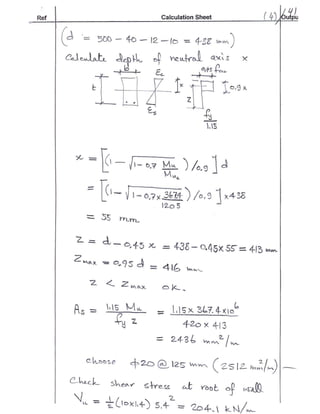 Ref Calculation Sheet (4)/(41) Output
(d = 500 - 40 - 12 - 10 = 438 mm)
Calculate depth of neutral axis x
b εc
t x 0.9x
z
εs fy
1.15
x = [(1 - √1-0.7 Mu/Muu)/0.9] d
= [(1 - √1-0.7x 367.4/1205)/0.9] x 438
= 55 mm
Z = d - 0.45 x = 438 - 0.45 x 55 = 413 mm
Zmax = 0.95 d = 416 mm
Z < Zmax o.k.
As = 1.15 Mu / fy z = 1.15 x 367.4 x 10^6 / 420 x 413
= 2436 mm²/m
choose ϕ20 @ 125 mm (2512 mm²/m)
Check shear stress at root of wall
Vu = 1/2 (10x1.4) 5.4² = 204.1 kN/m